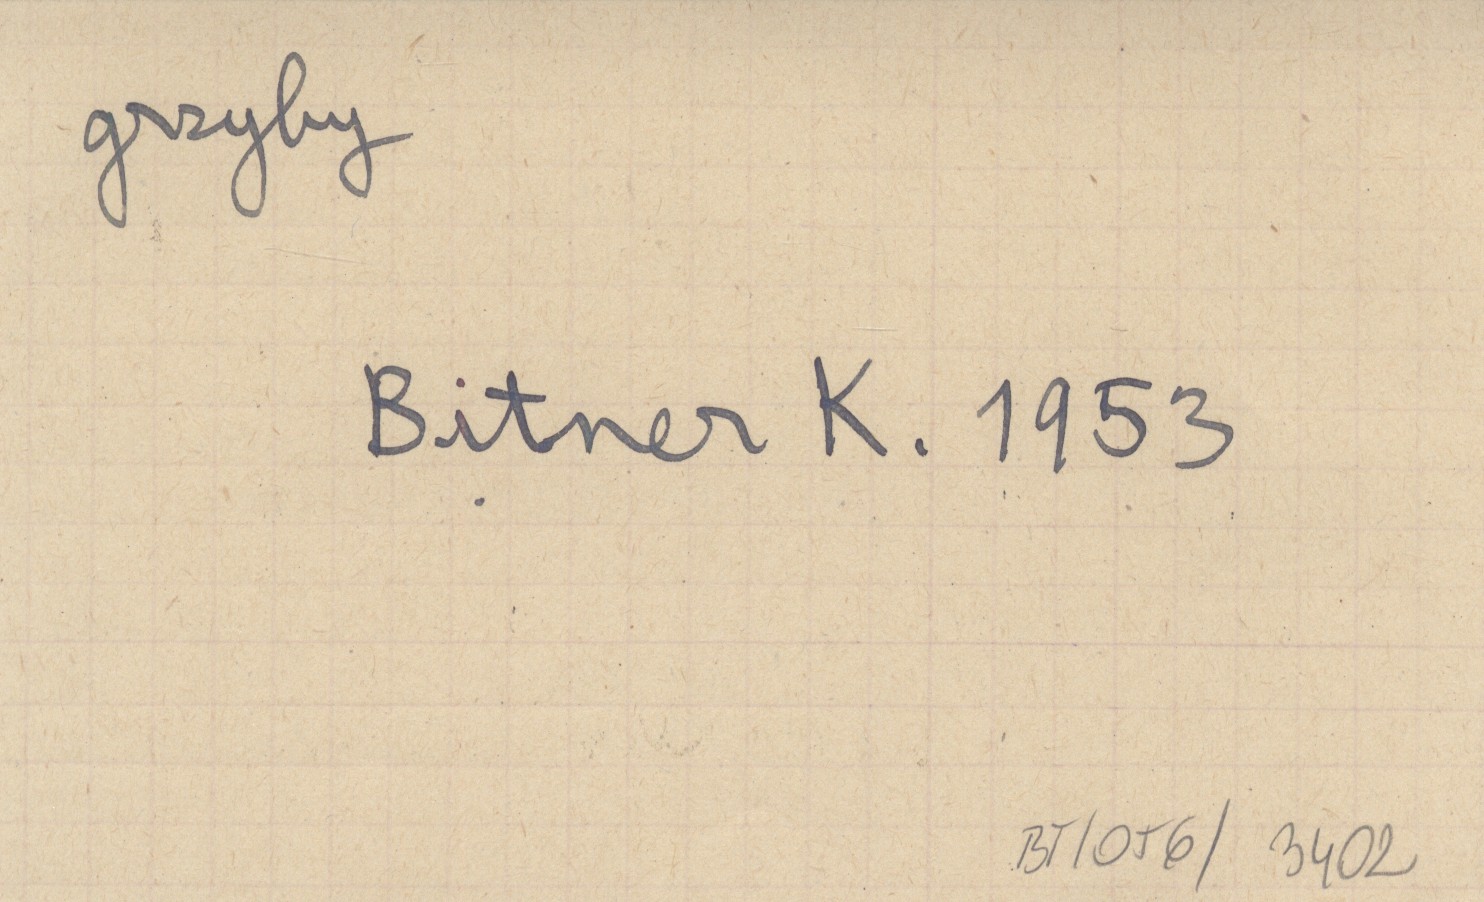 grzyby
Bitner K. 1953
BT/056/ 3402